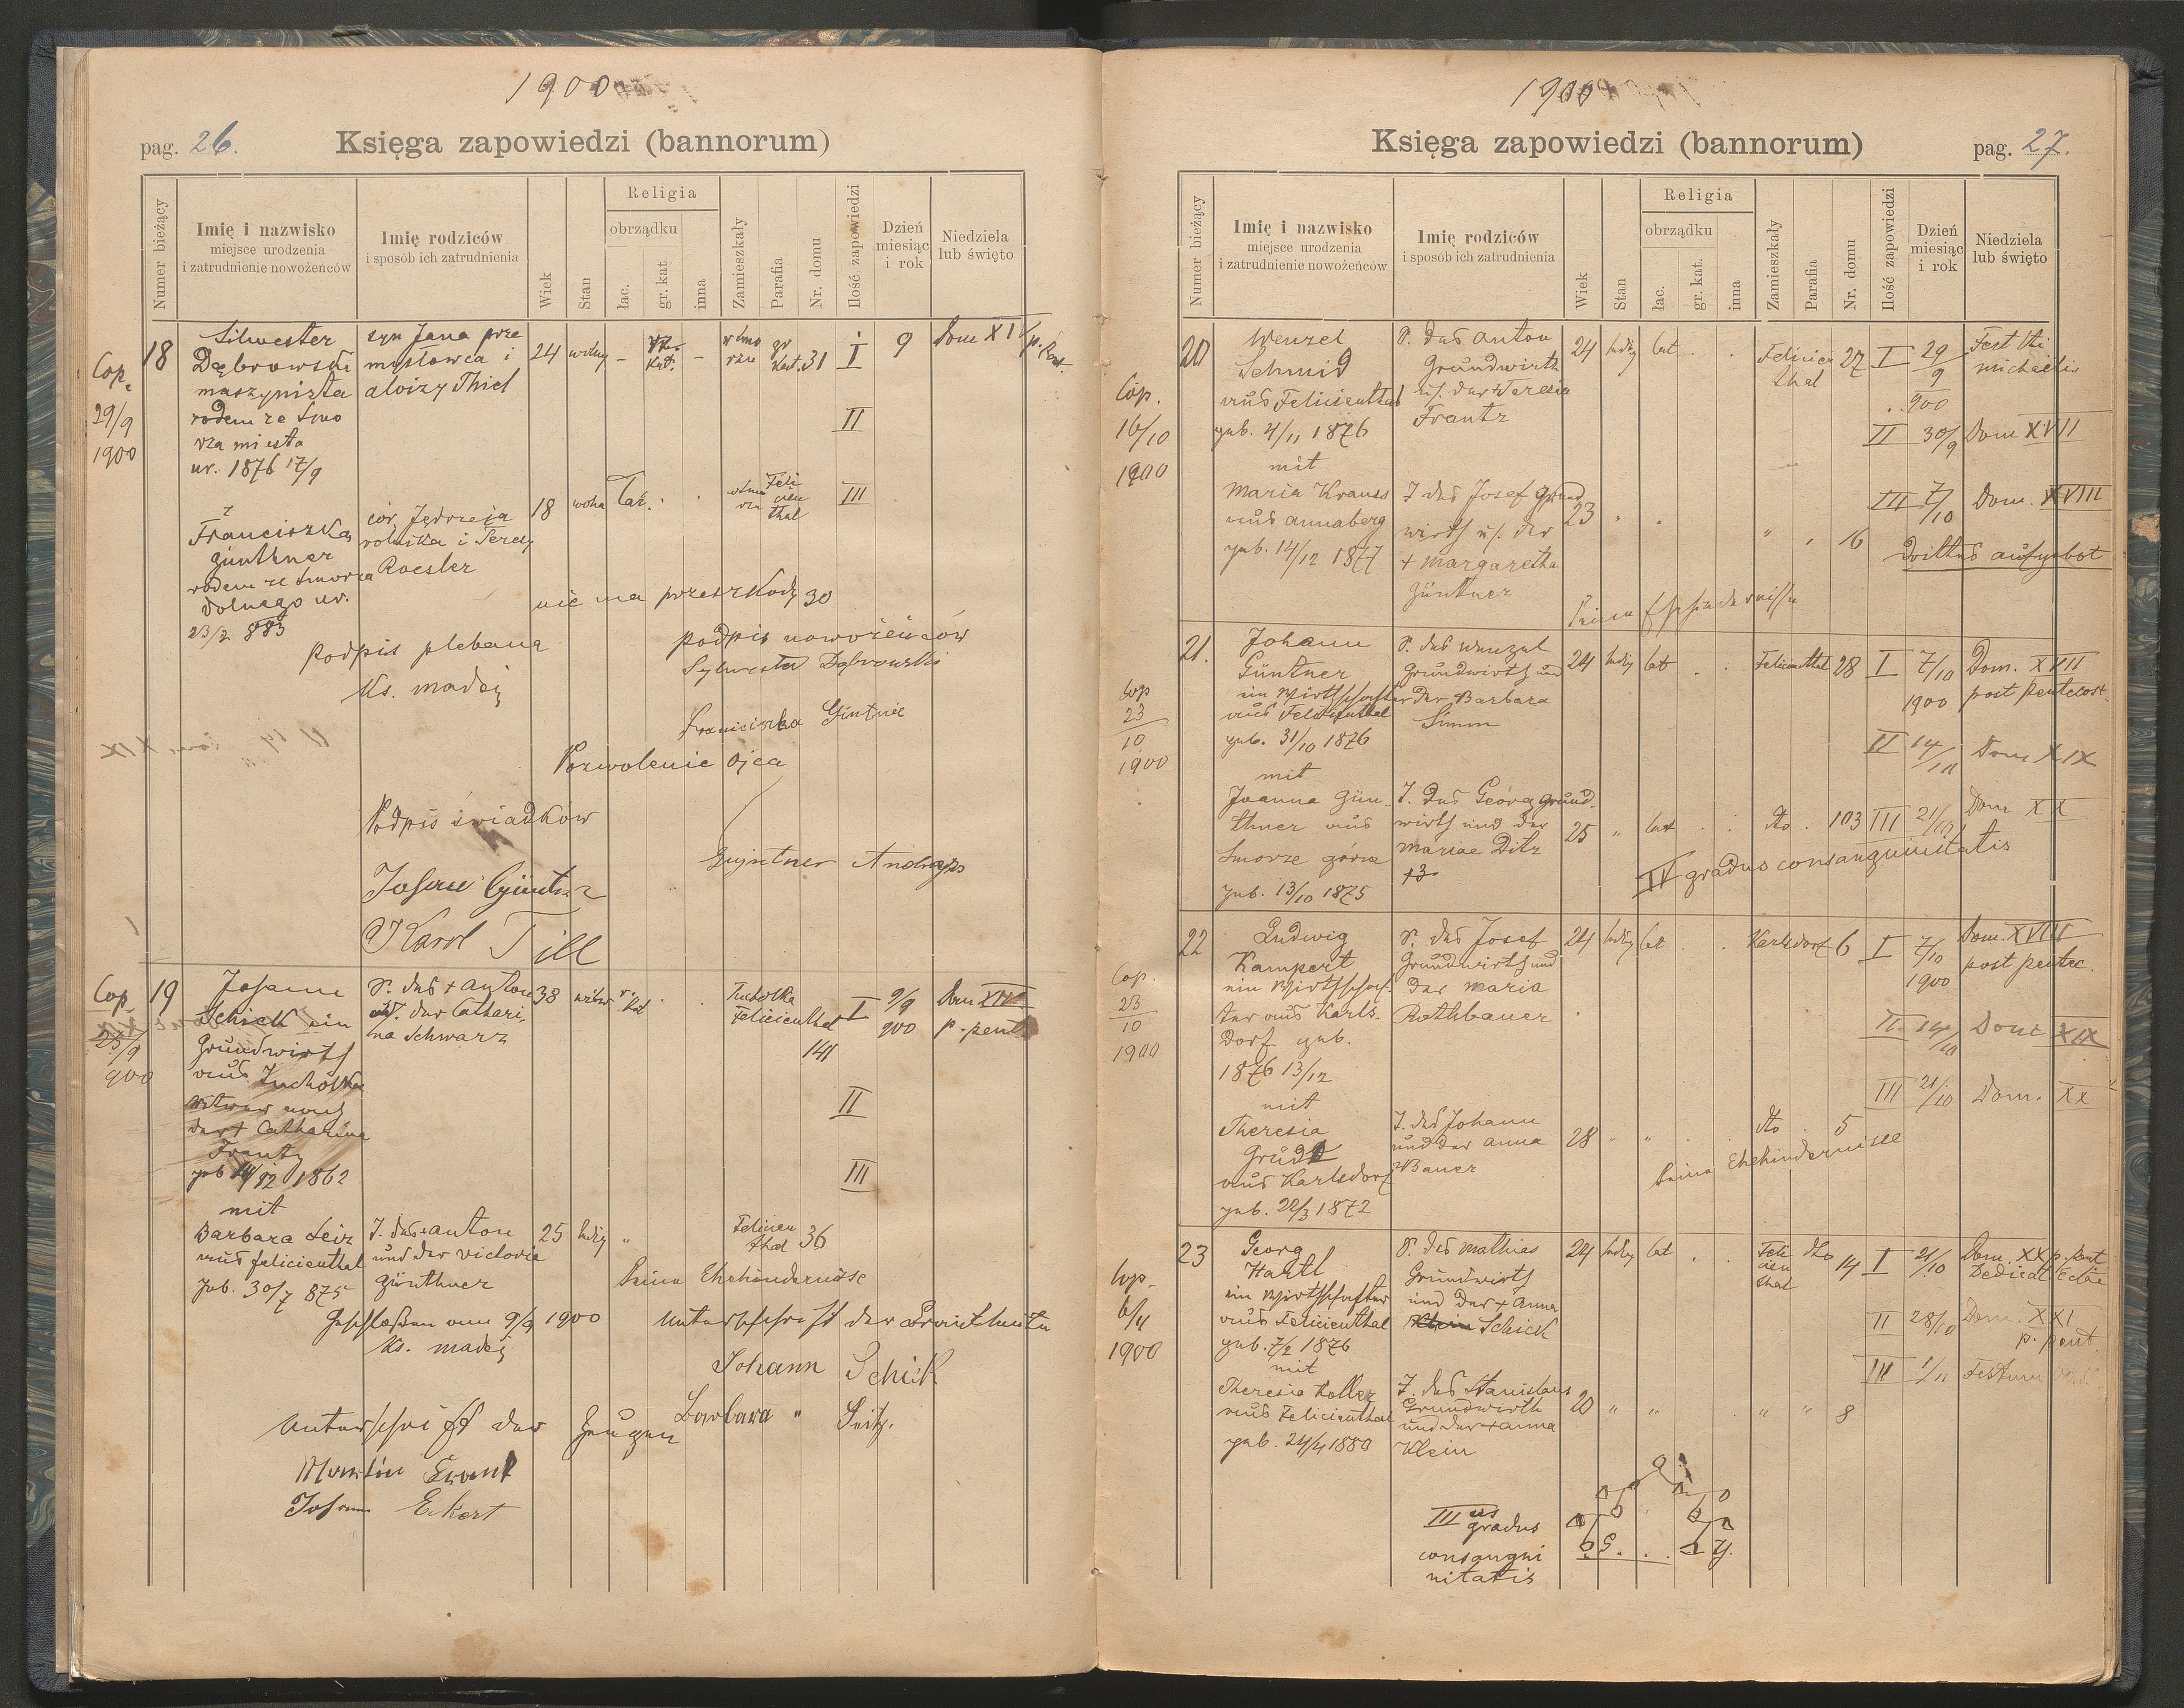 1900
pag. 26.
Księga zapowiedzi (bannorum)
Numer bieżący
Imię i nazwisko
miejsce urodzenia
i zatrudnienie nowożeńców
Imię rodziców
i sposób ich zatrudnienia
Wiek
Stan
Religia
obrządku
łac.
gr. kat
inna
Zamieszkały
Parafia
Nr. domu
Ilość zapowiedzi
Dzień
miesiąc
i rok
Niedziela
lub święto
Cop.
29/9
1900
18
Silwester
Dąbrowski
maszynista
rodem ze Smo
rza miasta
ur. 1876 17/9
syn Jana prze
mysłowca i
aloizy Thiel
24 wolny – Kat. – 31 I 9 Dom XIV p. Pent.
II
z
Franciszka
Günthner
rodem ze Smorza
dolnego ur.
23/2 883
cór. Jędrzeja
rolnika i Teresy
Roesler
18 wolna łać. Feli
cien
thal
III
nie ma przeszkody 30
Podpis plebana
Ks. Madej
podpis nowożeńców
Sylwester Dąbrowski
Franciszka Gintner
Pozwolenie ojca
Podpis świadków
Gyntner Andreas
Johann Güntner
Karol Till
Cop.
25/9
900
19
Johann
Schick ein
Grundwirth
aus Tucholka
Witwer nach
der + Catharina
Frantz
geb 14/12 1862
mit
Barbara Seiz
aus Felicienthal
geb. 30/7 875
S. des + Anton
u. der Cathari-
na Schwarz
38 witwer r. kat
Tucholka
Felicienthal
141
I 9/9
900
Dom XIV
p. pent.
II
III
T. des + Anton
und der Victoria
Günthner
25 ledig "
Felicien
thal 36
keine Ehehindernisse
Geschloßen am 9/9 1900
Ks. Madej
Unterschrift der Brautleute
Johann Schick
Barbara " Seitz.
Unterschrift der Zeugen
Martin Frant
Johann Eckert
1900
Księga zapowiedzi (bannorum)
pag. 27.
Numer bieżący
Imię i nazwisko
miejsce urodzenia
i zatrudnienie nowożeńców
Imię rodziców
i sposób ich zatrudnienia
Wiek
Stan
Religia
obrządku
łac.
gr. kat.
inna
Zamieszkały
Parafia
Nr. domu
Ilość zapowiedzi
Dzień
miesiąc
i rok
Niedziela
lub święto
Cop.
16/10
1900
20
Wenzel
Schmid
aus Felicienthal
geb. 4/11 1876
mit
Maria Krauss
aus Annaberg
geb. 14/12 1877
S. des Anton
Grundwirth
u. der + Teresia
Frantz
24 ledig lat . . Felicien
thal 27 I 29
9
900
Fest Sti
Michaelis
II 30/9 Dom XVII
T. des Josef Grund
wirth u. der
+ Margaretha
Güntner
23 " 16
III 7/10 Dom. XVIII
Drittes aufgebot
Keine Ehehindernisse
Cop
23
10
1900
21.
Johann
Güntner
ein Wirthschafter
aus Felicienthal
geb. 31/10 1876
mit
Joanna Gün-
thner aus
Smorze górne
geb. 13/10 1875
S. des Wenzel
Grundwirth und
der Barbara
Simm
24 ledig lat . Felicienthal 28 I 7/10
1900
Dom. XVIII
post pentecost.
II 14/10 Dom XIX
T. des Georg Grund.
wirth und der
Mariae Ditz
25 " lat . . dto . 103 III 21/10 Dom XX
IV gradus consanguinitatis
Cop.
23
10
1900
22
Ludwig
Kampert
ein Wirthschaf-
ter aus Karls-
dorf geb.
1876 13/12
mit
Theresia
aus Karlsdorf
geb. 22/3 1872
S. des Josef
Grundwirth und
der Maria
Rothbauer
24 ledig lat . . Karlsdorf 6 I 7/10
1900
Dom. XVIII
post pentec.
II 14/10 Dom XIX
III 21/10 Dom. XX
T. des Johann
und der Anna
Bauer
28 " " . . dto . 5
keine Ehehindernisse
Cop.
6/11
1900
23
Georg
Hartl
ein Wirthschafter
aus Felicienthal
geb. 7/2 1876
mit
Theresia Koller
aus Felicienthal
geb. 24/4 1880
S. des Mathias
Grundwirth
und der + Anna
Klein Schick
24 ledig lat . . Feli
cien
thal dto 14 I 21/10 Dom. XX p. pent
Dedicat. Eccliae
II 28/10 Dom. XXI
p. pent.
III 1/11 Festum
T. des Stanislaus
Grundwirth
und der + Anna
Klein
20 " " " " 8
III us
gradus
consangui
nitatis